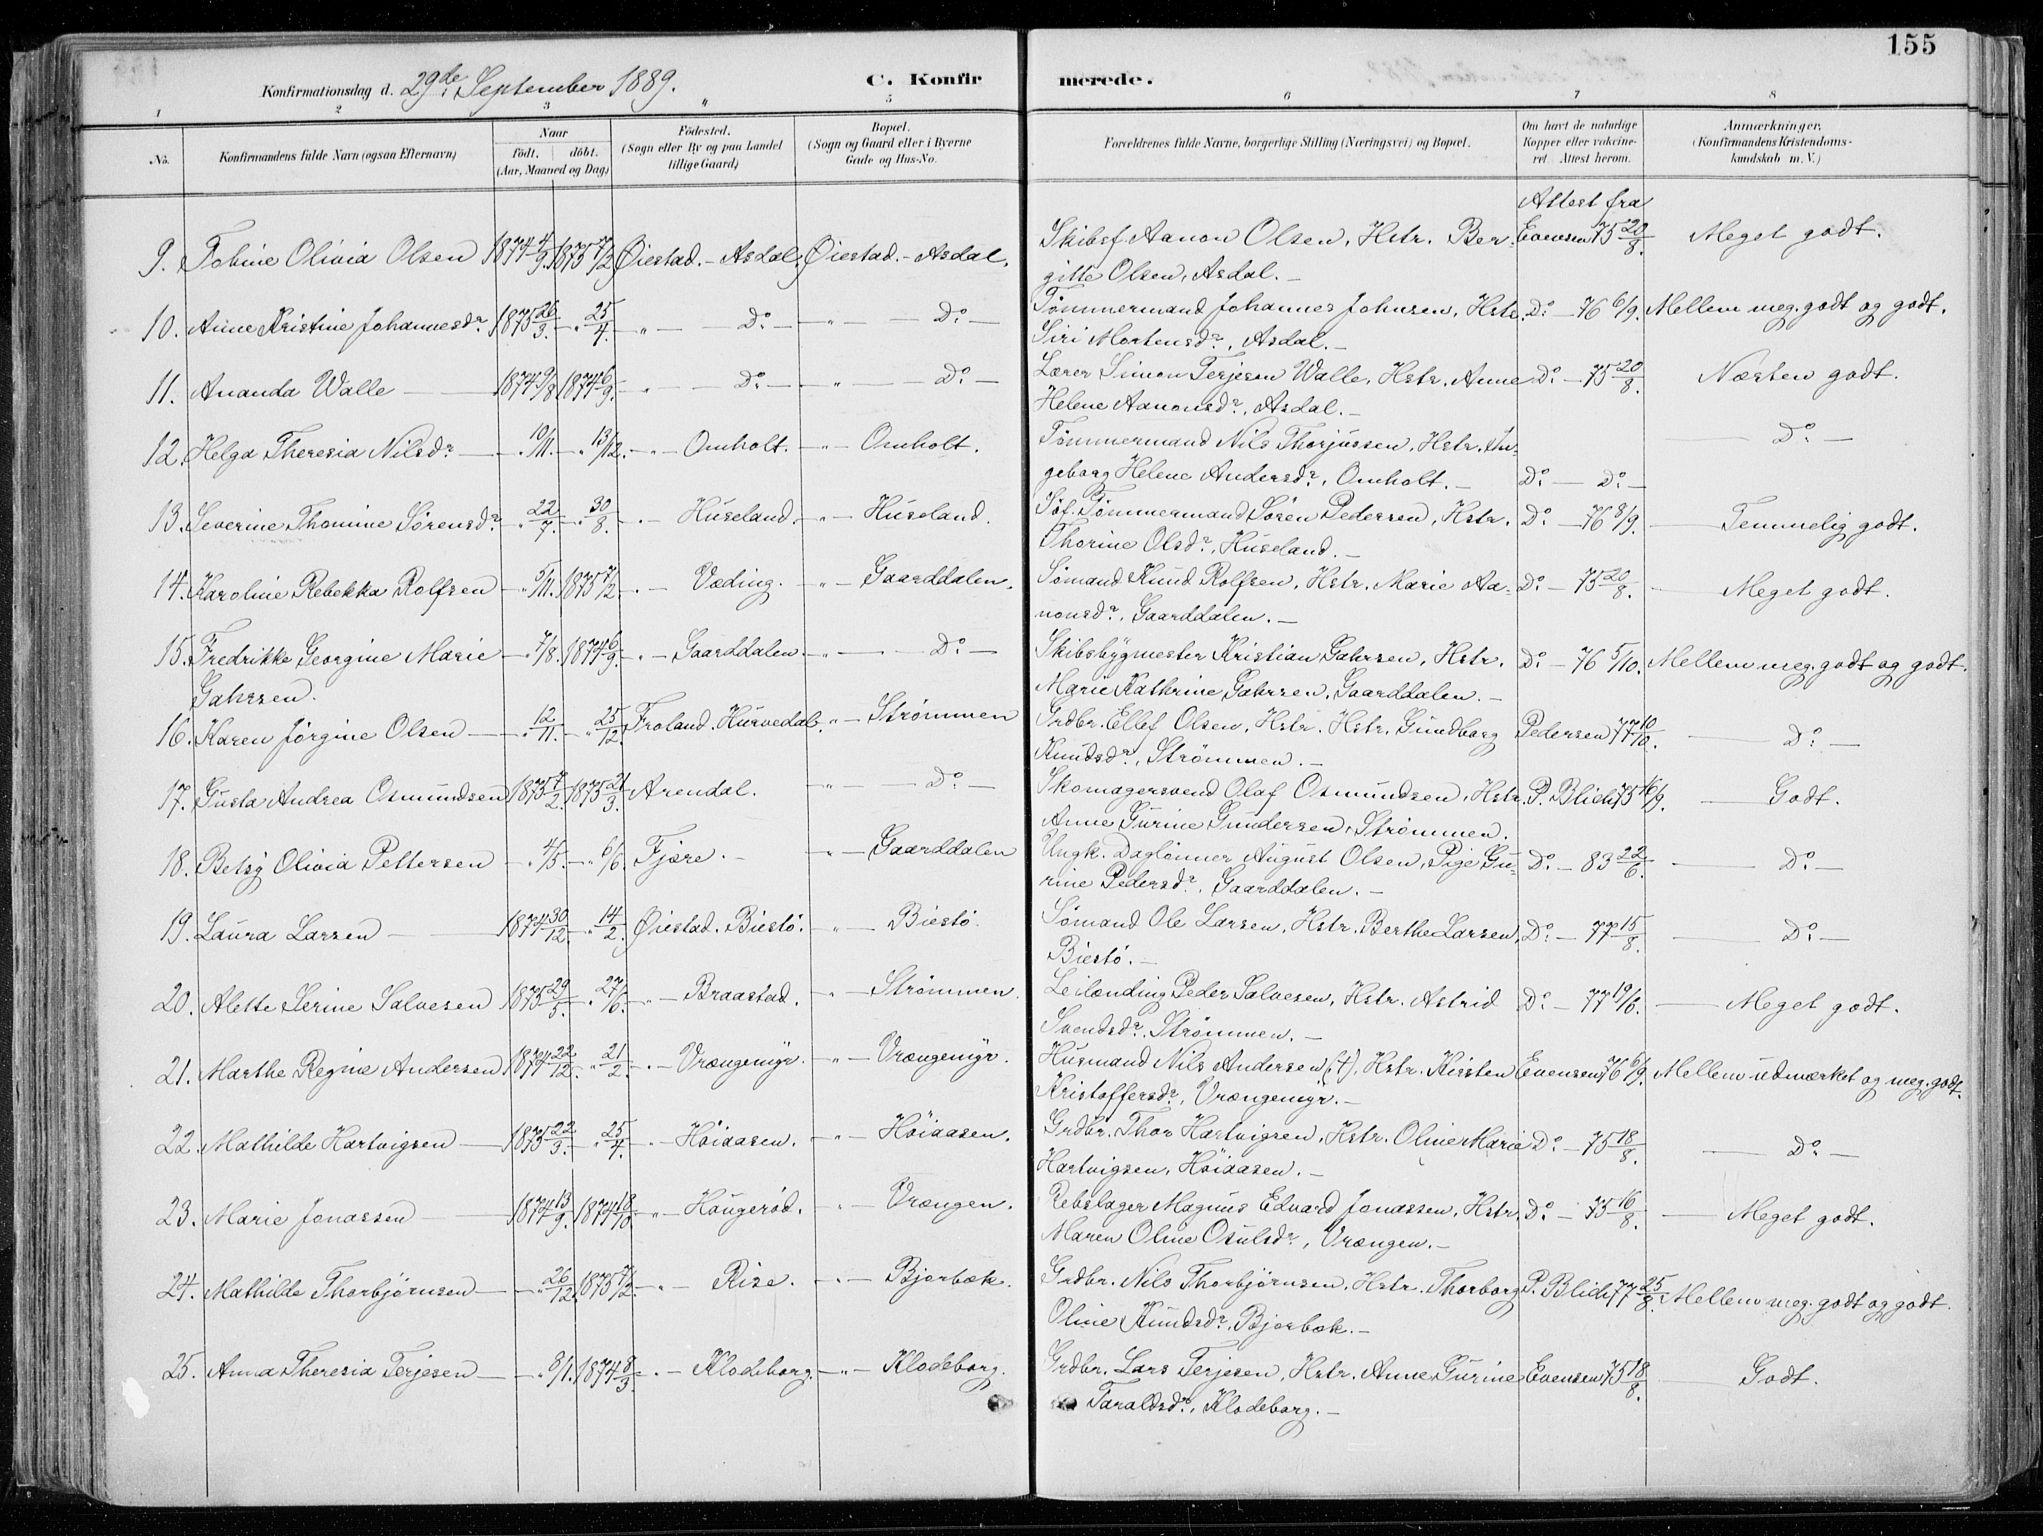 155
Konfirmationsdag d. 29de September 1889.
C. Konfirmerede.
1 2 3 4 5 6 7 8
No. Konfirmandens fulde Navn (ogsaa Efternavn) Naar født, døbt. (Aar, Maaned og Dag) Fødested. (Sogn eller By og paa Landet tillige Gaard) Bopæl. (Sogn og Gaard eller i Byerne Gade og Hus-No. Forældrenes fulde Navne, borgerlige Stilling (Næringsvei) og Bopæl. Om havt de naturlige Kopper eller vakcineret. Attest herom. Anmærkninger. (Konfirmandens Kristendomskundskab m. V.)
Attest fra
9. Tobine Olivia Olsen 1874 4/9. 1875 7/2 Øiestad. - Asdal. Øiestad. - Asdal. Skibsf. Aanon Olsen, Hstr. Ber- Evensen 75 20/8. Meget godt.
gitte Olsen, Asdal. —
10. Anne Kristine Johannesdr. 1875 26/3. — " 25/4. " — Do. — " — Do. — Tømmermand Johannes Johnsen, Hstr. Do. — 76 6/9. Mellem meg. godt og godt.
Siri Mortensdr., Asdal. —
11. Ananda Walle — 1874 9/8 1874 6/9. " — Do. — " — Do. — Lærer Simon Terjesen Walle, Hstr. Anne Do. — 75 20/8. Næsten godt.
Helene Aanonsdr., Asdal. —
12. Helga Theresia Nilsdr. — " 10/11. — " 13/12. — " — Omholt. — " — Omholt. Tømmermand Nils Thorjussen, Hstr. In- — Do. —
geborg Helene Andersdr., Omholt. — Do. — Do. —
13. Severine Thomine Sørensdr. — " 22/7. — " 30/8. — " — Huseland. — " — Huseland. Søf. Tømmermand Søren Pedersen, Hstr. Do. — 76 8/9. — Temmelig godt.
Thorine Olsdr., Huseland. —
14. Karoline Rebekka Rolfsen — " 5/11. 1875 7/2. — " — Væding. — " — Gaarddalen. Sømand Knud Rolfsen, Hstr. Marie Aa- Do. — 75 20/8. — Meget godt.
nonsdr., Gaarddalen. —
15. Fredrikke Georgine Marie — " 7/8. 1874 6/9. — " — Gaarddalen. — " — Do. — Skibsbygmester Kristian Gahrsen, Hstr. Do. — 76 5/10. Mellem meg. godt og godt.
Gahrsen. Marie Kathrine Gahrsen, Gaarddalen. —
16. Karen Jørgine Olsen — " 12/11. — " 25/12. Froland. Hurvedal. — " — Strømmen Grdbr. Ellef Olsen, Hstr. Hstr. Gundborg Pedersen 77 10/10. — Do. —
Knudsdr., Strømmen. —
17. Gusta Andrea Osmundsen 1875 7/2. 1875 21/3. Arendal. " — Do. — Skomagersvend Olaf Osmundsen, Hstr. P. Blich 75 16/9. — Godt.
Anne Gurine Gundersen, Strømmen.
18. Betsy Olivia Pettersen — " 4/5. — " 6/6. Fjære. — " — Gaarddalen Ungk. Daglønner August Olsen, Pige Gu- Do. — 83 22/6. — Do. —
rine Pedersdr., Gaarddalen. —
19. Laura Larsen — 1874 30/12. — " 14/2. Øiestad. Biestø. " — Biestø. Sømand Ole Larsen, Hstr. Berthe Larsen, Do. — 77 15/8. — Do. —
Biestø. —
20. Alette Serine Salvesen 1875 29/5. — " 27/6. — " — Braastad. " — Strømmen. Leilænding Peder Salvesen, Hstr. Astrid Do. — 77 19/6. — Meget godt.
Svendsdr., Strømmen. —
21. Marthe Regine Andersen 1874 22/12. — " 21/2. — " — Vrængemyr. — " — Vrængemyr. Husmand Nils Andersen (†), Hstr. Kirsten Evensen 76 6/9. Mellem udmærket og meg. godt.
Kristoffersdr., Vrængemyr. —
22. Mathilde Hartvigsen — 1875 22/3. — " 25/4. — " — Høiaasen. — " — Høiaasen. Grdbr. Thor Hartvigsen, Hstr. Oline Marie Do. — 75 18/8. — Do. —
Hartvigsen, Høiaasen. —
23. Marie Jonassen — 1874 13/9. 1874 18/10. — " — Haugerød. " — Vrængen. Rebslager Magnus Edvard Jonassen, Hstr. Do. — 75 16/8. — Meget godt.
Maren Oline Osulsdr., Vrængen. —
24. Mathilde Thorbjørnsen — " 26/12. 1875 7/2. — " — Rise. — " — Bjorbæk. Grdbr. Nils Thorbjørnsen, Hstr. Thorborg P. Blich 77 25/8. Mellem meg. godt og godt.
Oline Knudsdr., Bjorbæk. —
25. Anna Theresia Terjesen — " 8/1. 1874 8/3. — " — Klodeborg. — " — Klodeborg. Grdbr. Lars Terjesen, Hstr. Anne Gurine Evensen 75 18/8. — Godt.
Taraldsdr., Klodeborg. —